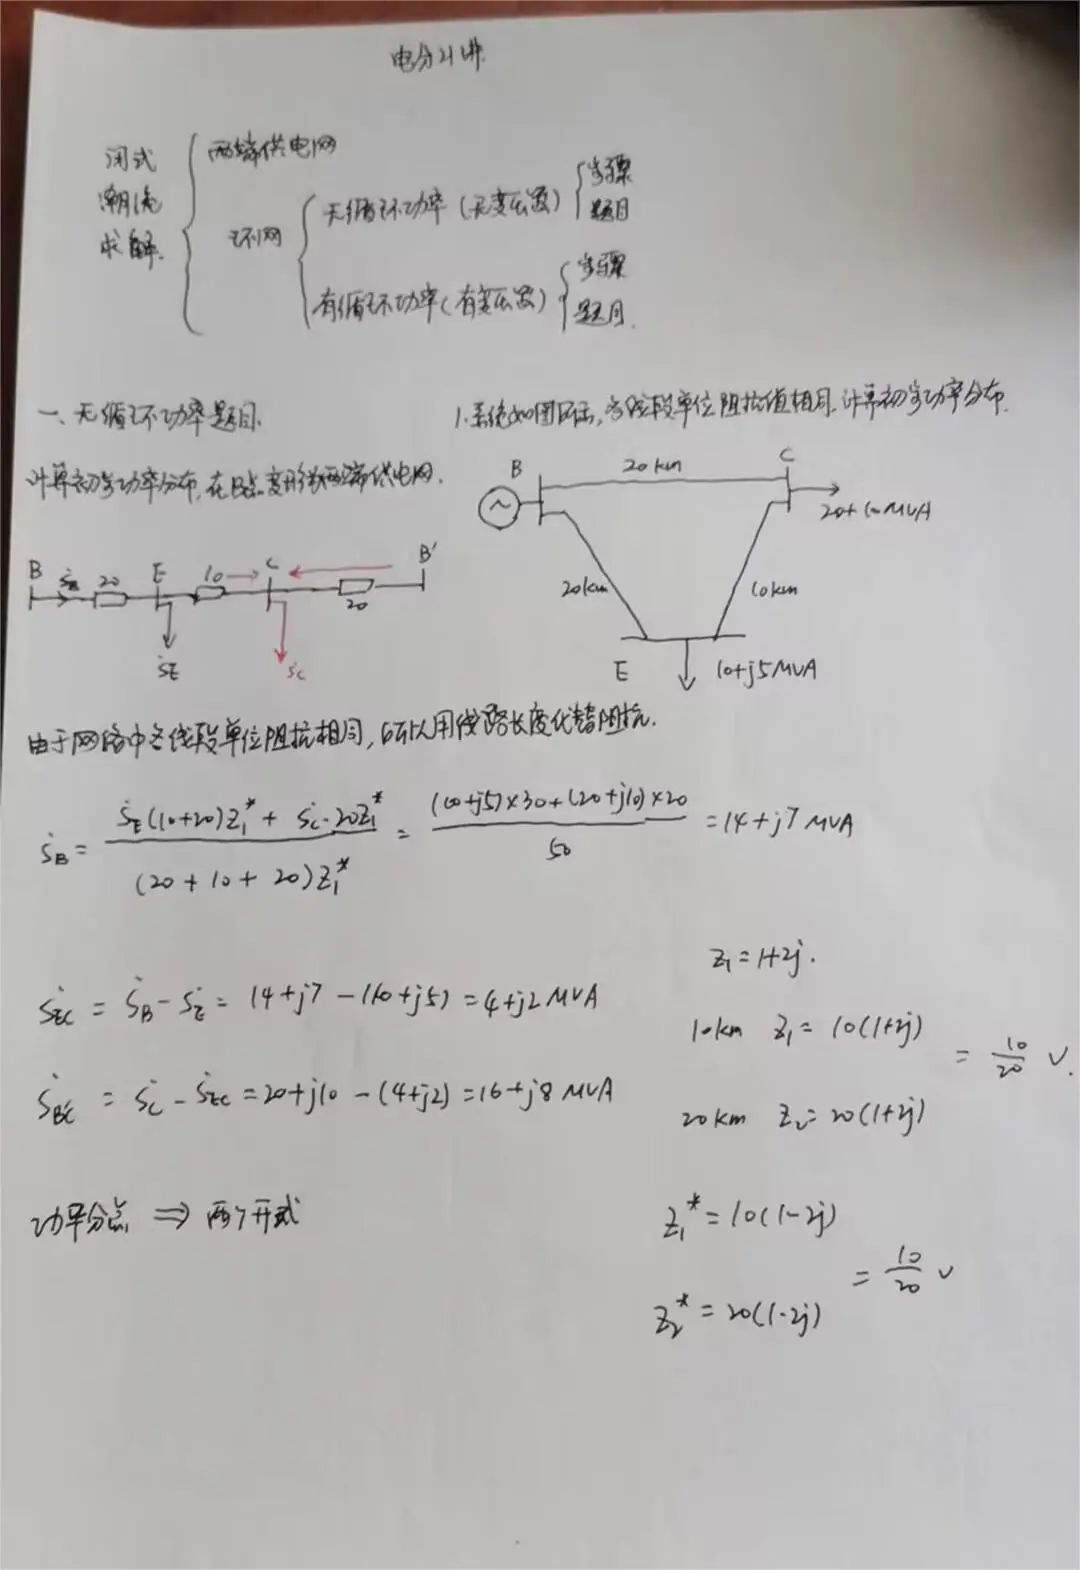 电分21讲.
闭式
潮流
求解.
两端供电网
环网
无循环功率(无变压器)
步骤
题目
有循环功率(有变压器)
步骤
题目.
一、无循环功率题目.
计算初步功率分布,在B点变形为两端供电网.
1.系统如图所示,各段单位阻抗值相同.计算初步功率分布.
B 20km C
20km 10km
20+10MVA
E 10+j5MVA
B 20 E 10 C 20 B'
ṠE ṠC
由于网络中各线段单位阻抗相同,所以用线路长度代替阻抗.
ṠB = (ṠE(10+20)Z1* + ṠC·20Z1*) / ((20+10+20)Z1*) = ((10+j5)×30+(20+j10)×20) / 50 = 14+j7 MVA
ṠEC = ṠB-ṠE = 14+j7-(10+j5) = 4+j2 MVA
ṠB'C = ṠC-ṠEC = 20+j10-(4+j2) = 16+j8 MVA
功率分点 ⇒ 两个开式
Z1=1+2j.
10km Z1=10(1+2j)
20km Z2=20(1+2j)
= 10/20 ✓.
Z1*=10(1-2j)
Z2*=20(1-2j)
= 10/20 ✓